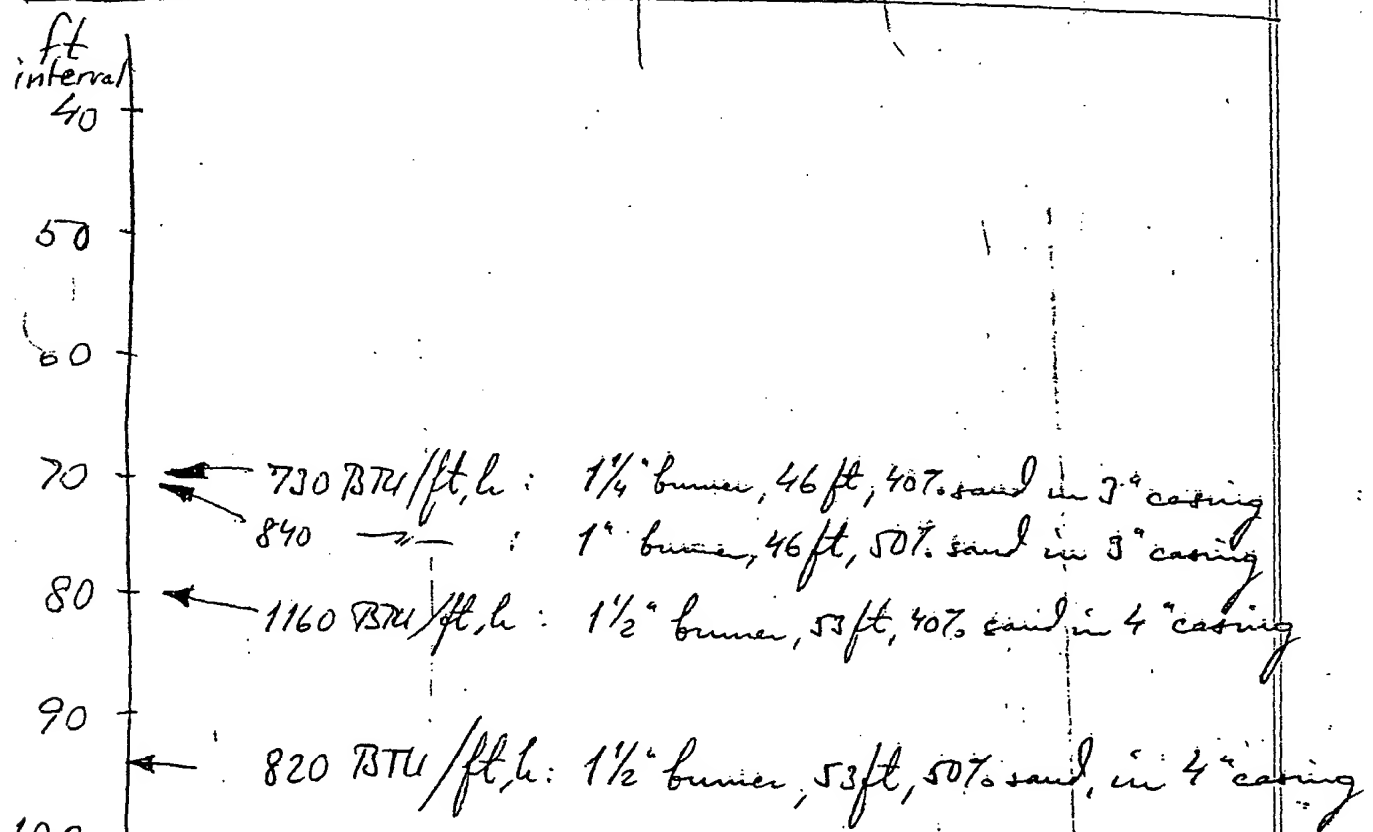 ft
interval
40
50
60
70 730 BTU/ft,h : 1¼" burner, 46 ft, 40% sand in 3" casing
840 —〃— : 1" burner, 46 ft, 50% sand in 3" casing
80 1160 BTU/ft,h : 1½" burner, 53 ft, 40% sand in 4" casing
90
820 BTU/ft,h : 1½" burner, 53 ft, 50% sand, in 4" casing